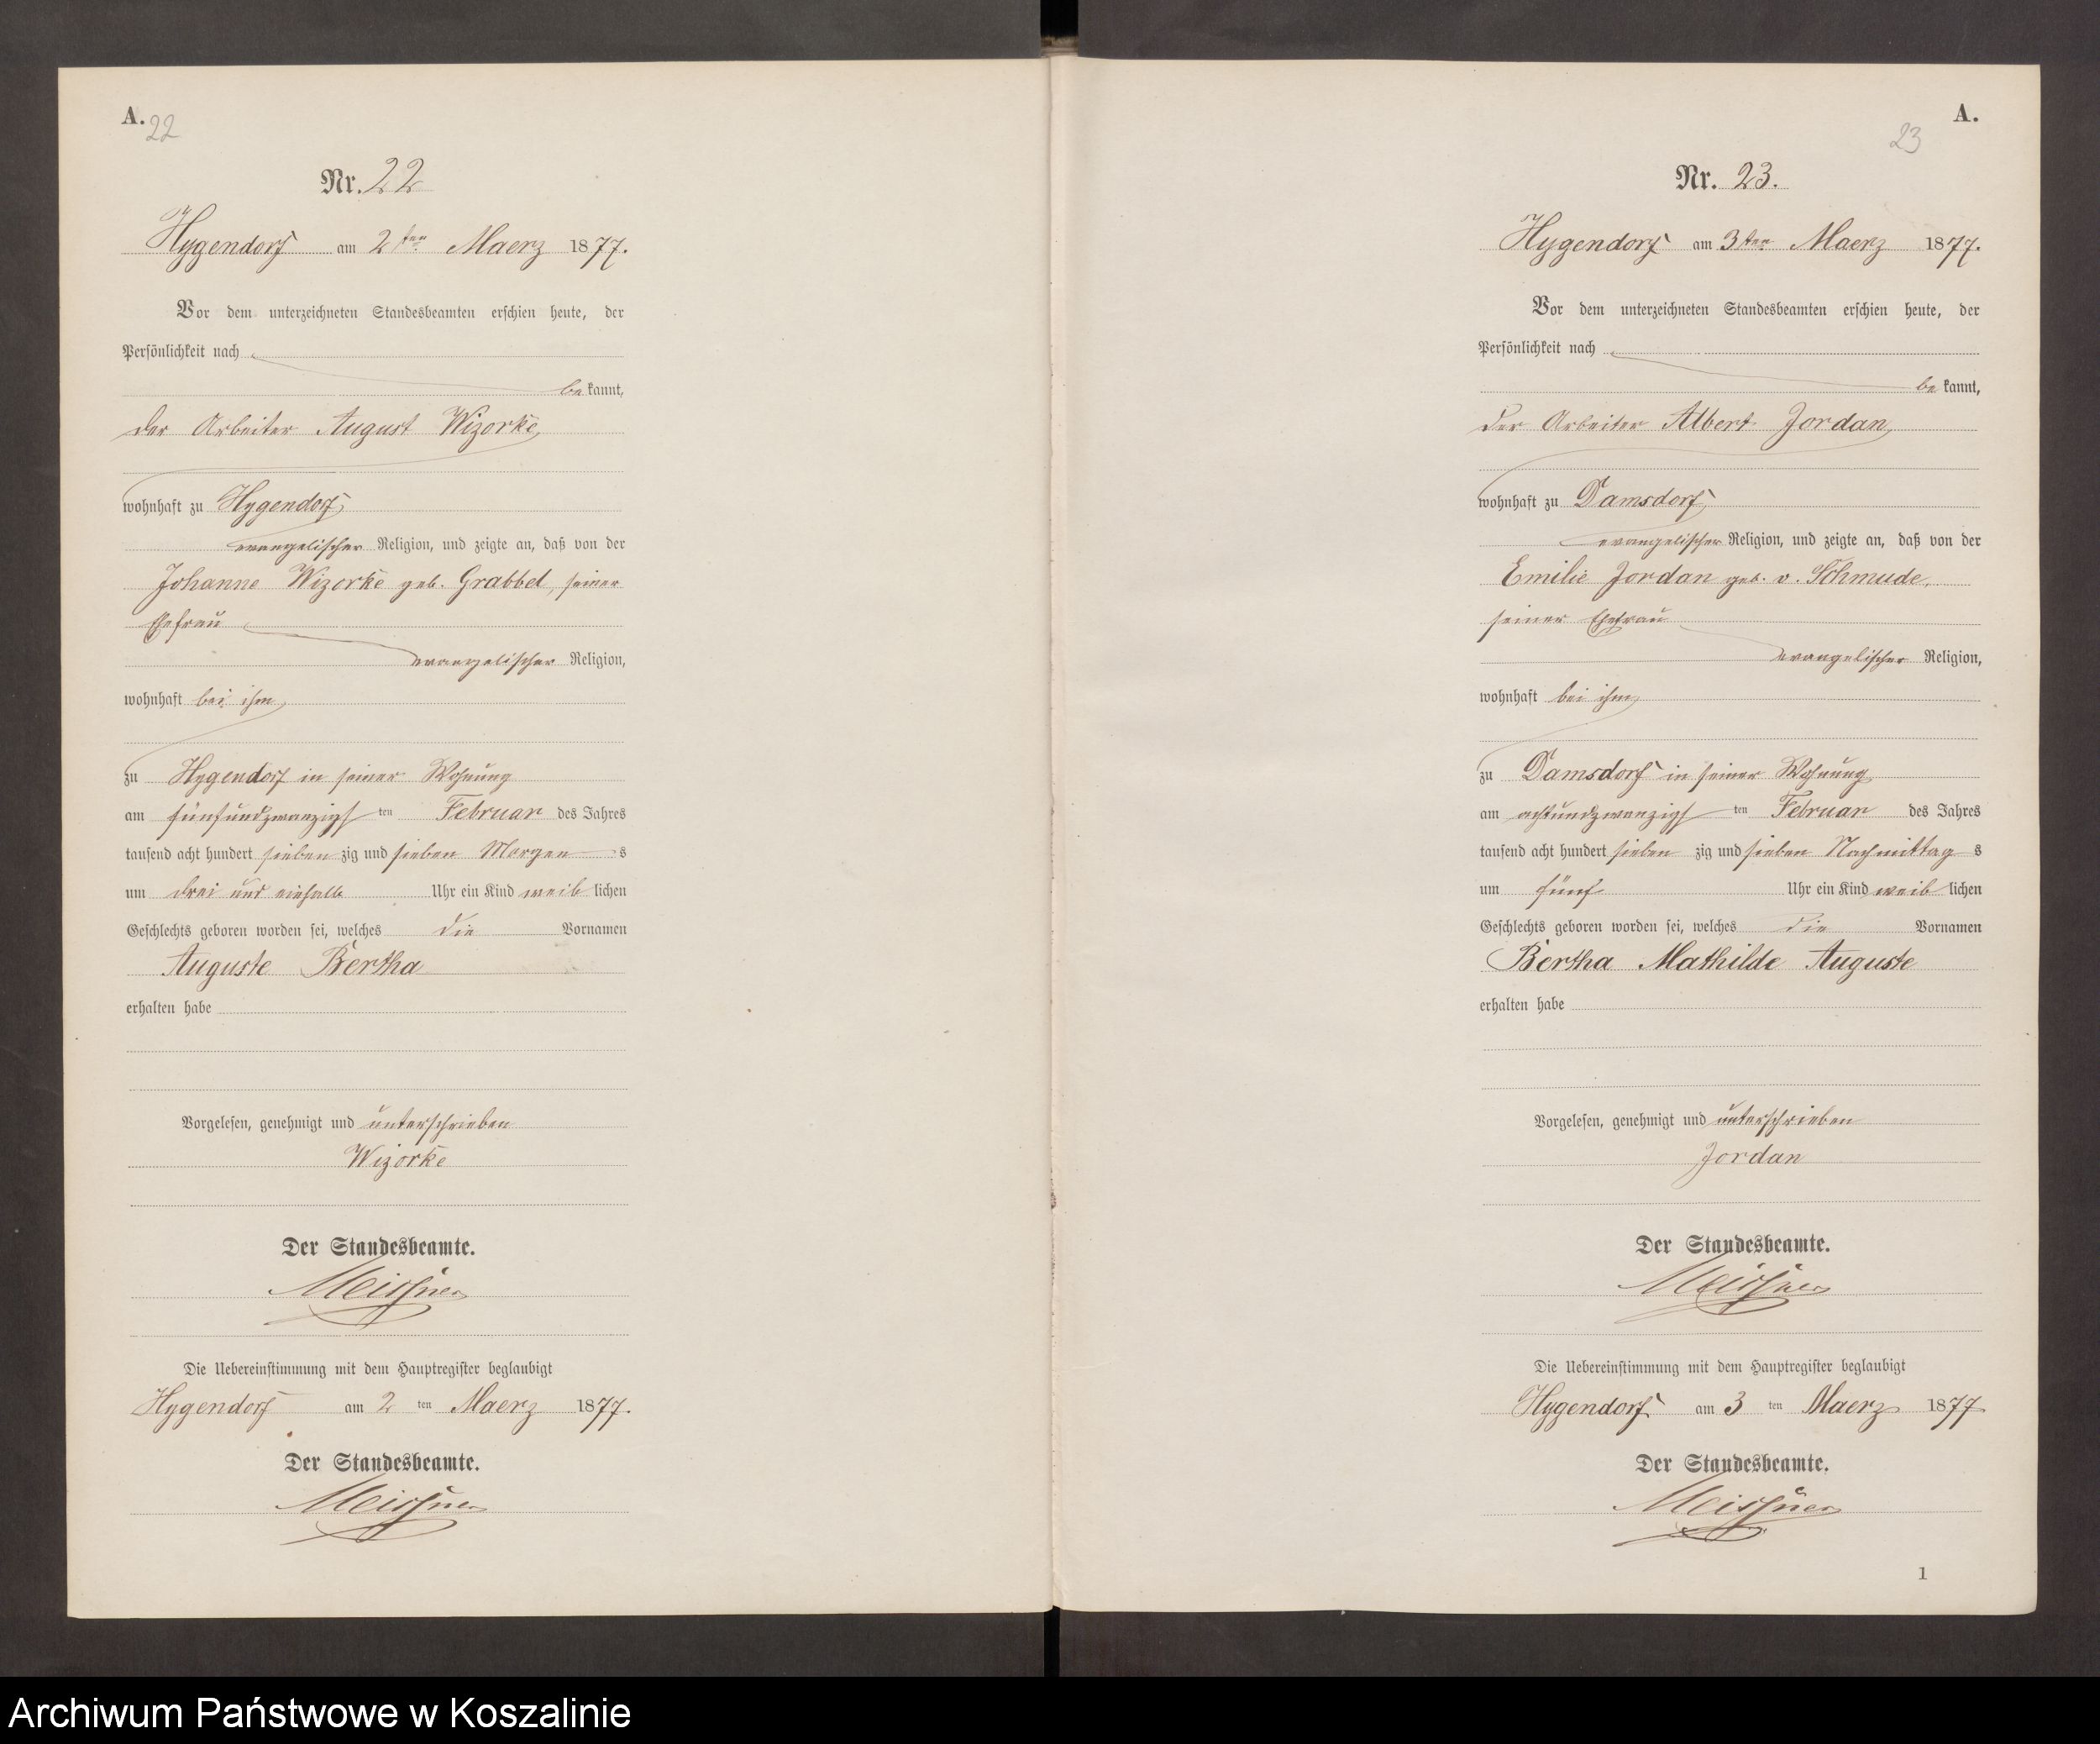 A. 22
Nr. 22
Hygendorf am 2ten Maerz 1877.
Vor dem unterzeichneten Standesbeamten erschien heute, der
Persönlichkeit nach
be kannt,
der Arbeiter August Wizorke,
wohnhaft zu Hygendorf,
evangelischer Religion, und zeigte an, daß von der
Johanne Wizorke geb. Grabbel, seiner
Ehefrau
evangelischer Religion,
wohnhaft bei ihm,
zu Hygendorf in seiner Wohnung
am fünfundzwanzigsten Februar des Jahres
tausend acht hundert sieben zig und sieben Morgen s
um drei und einhalb Uhr ein Kind weib lichen
Geschlechts geboren worden sei, welches die Vornamen
Auguste Bertha
erhalten habe
Vorgelesen, genehmigt und unterschrieben
Wizorke
Der Standesbeamte.
Meissner
Die Uebereinstimmung mit dem Hauptregister beglaubigt
Hygendorf am 2 ten Maerz 1877.
Der Standesbeamte.
Meissner
A.
23
Nr. 23.
Hygendorf am 3ten Maerz 1877.
Vor dem unterzeichneten Standesbeamten erschien heute, der
Persönlichkeit nach
be kannt,
der Arbeiter Albert Jordan,
wohnhaft zu Damsdorf,
evangelischer Religion, und zeigte an, daß von der
Emilie Jordan geb. v. Schmude,
seiner Ehefrau
evangelischer Religion,
wohnhaft bei ihm,
zu Damsdorf in seiner Wohnung
am achtundzwanzigsten Februar des Jahres
tausend acht hundert sieben zig und sieben Nachmittag s
um fünf Uhr ein Kind weib lichen
Geschlechts geboren worden sei, welches die Vornamen
Bertha Mathilde Auguste
erhalten habe
Vorgelesen, genehmigt und unterschrieben
Jordan
Der Standesbeamte.
Meissner
Die Uebereinstimmung mit dem Hauptregister beglaubigt
Hygendorf am 3 ten Maerz 1877
Der Standesbeamte.
Meissner
1
Archiwum Państwowe w Koszalinie